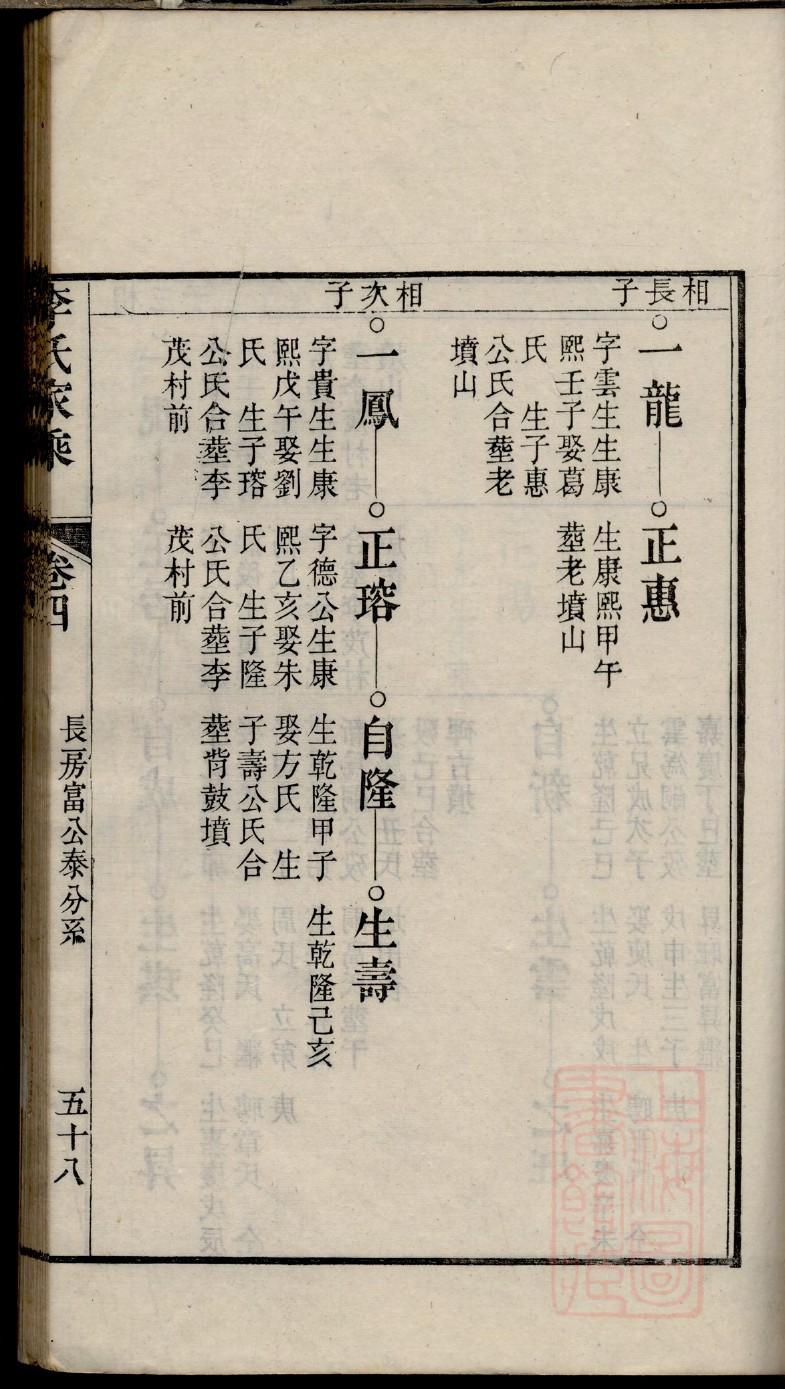 相長子
一龍
字雲生生康
熙壬子娶葛
氏　生子惠
公氏合塟老
墳山
正惠
生康熙甲午
塟老墳山
相次子
一鳳
字貴生生康
熙戊午娶劉
氏　生子瑢
公氏合塟李
茂村前
正瑢
字德公生康
熙乙亥娶朱
氏　生子隆
公氏合塟李
茂村前
自隆
生乾隆甲子
娶方氏　生
子壽公氏合
塟背鼓墳
生壽
生乾隆己亥
李氏家乘
卷四
長房富公泰分系
五十八